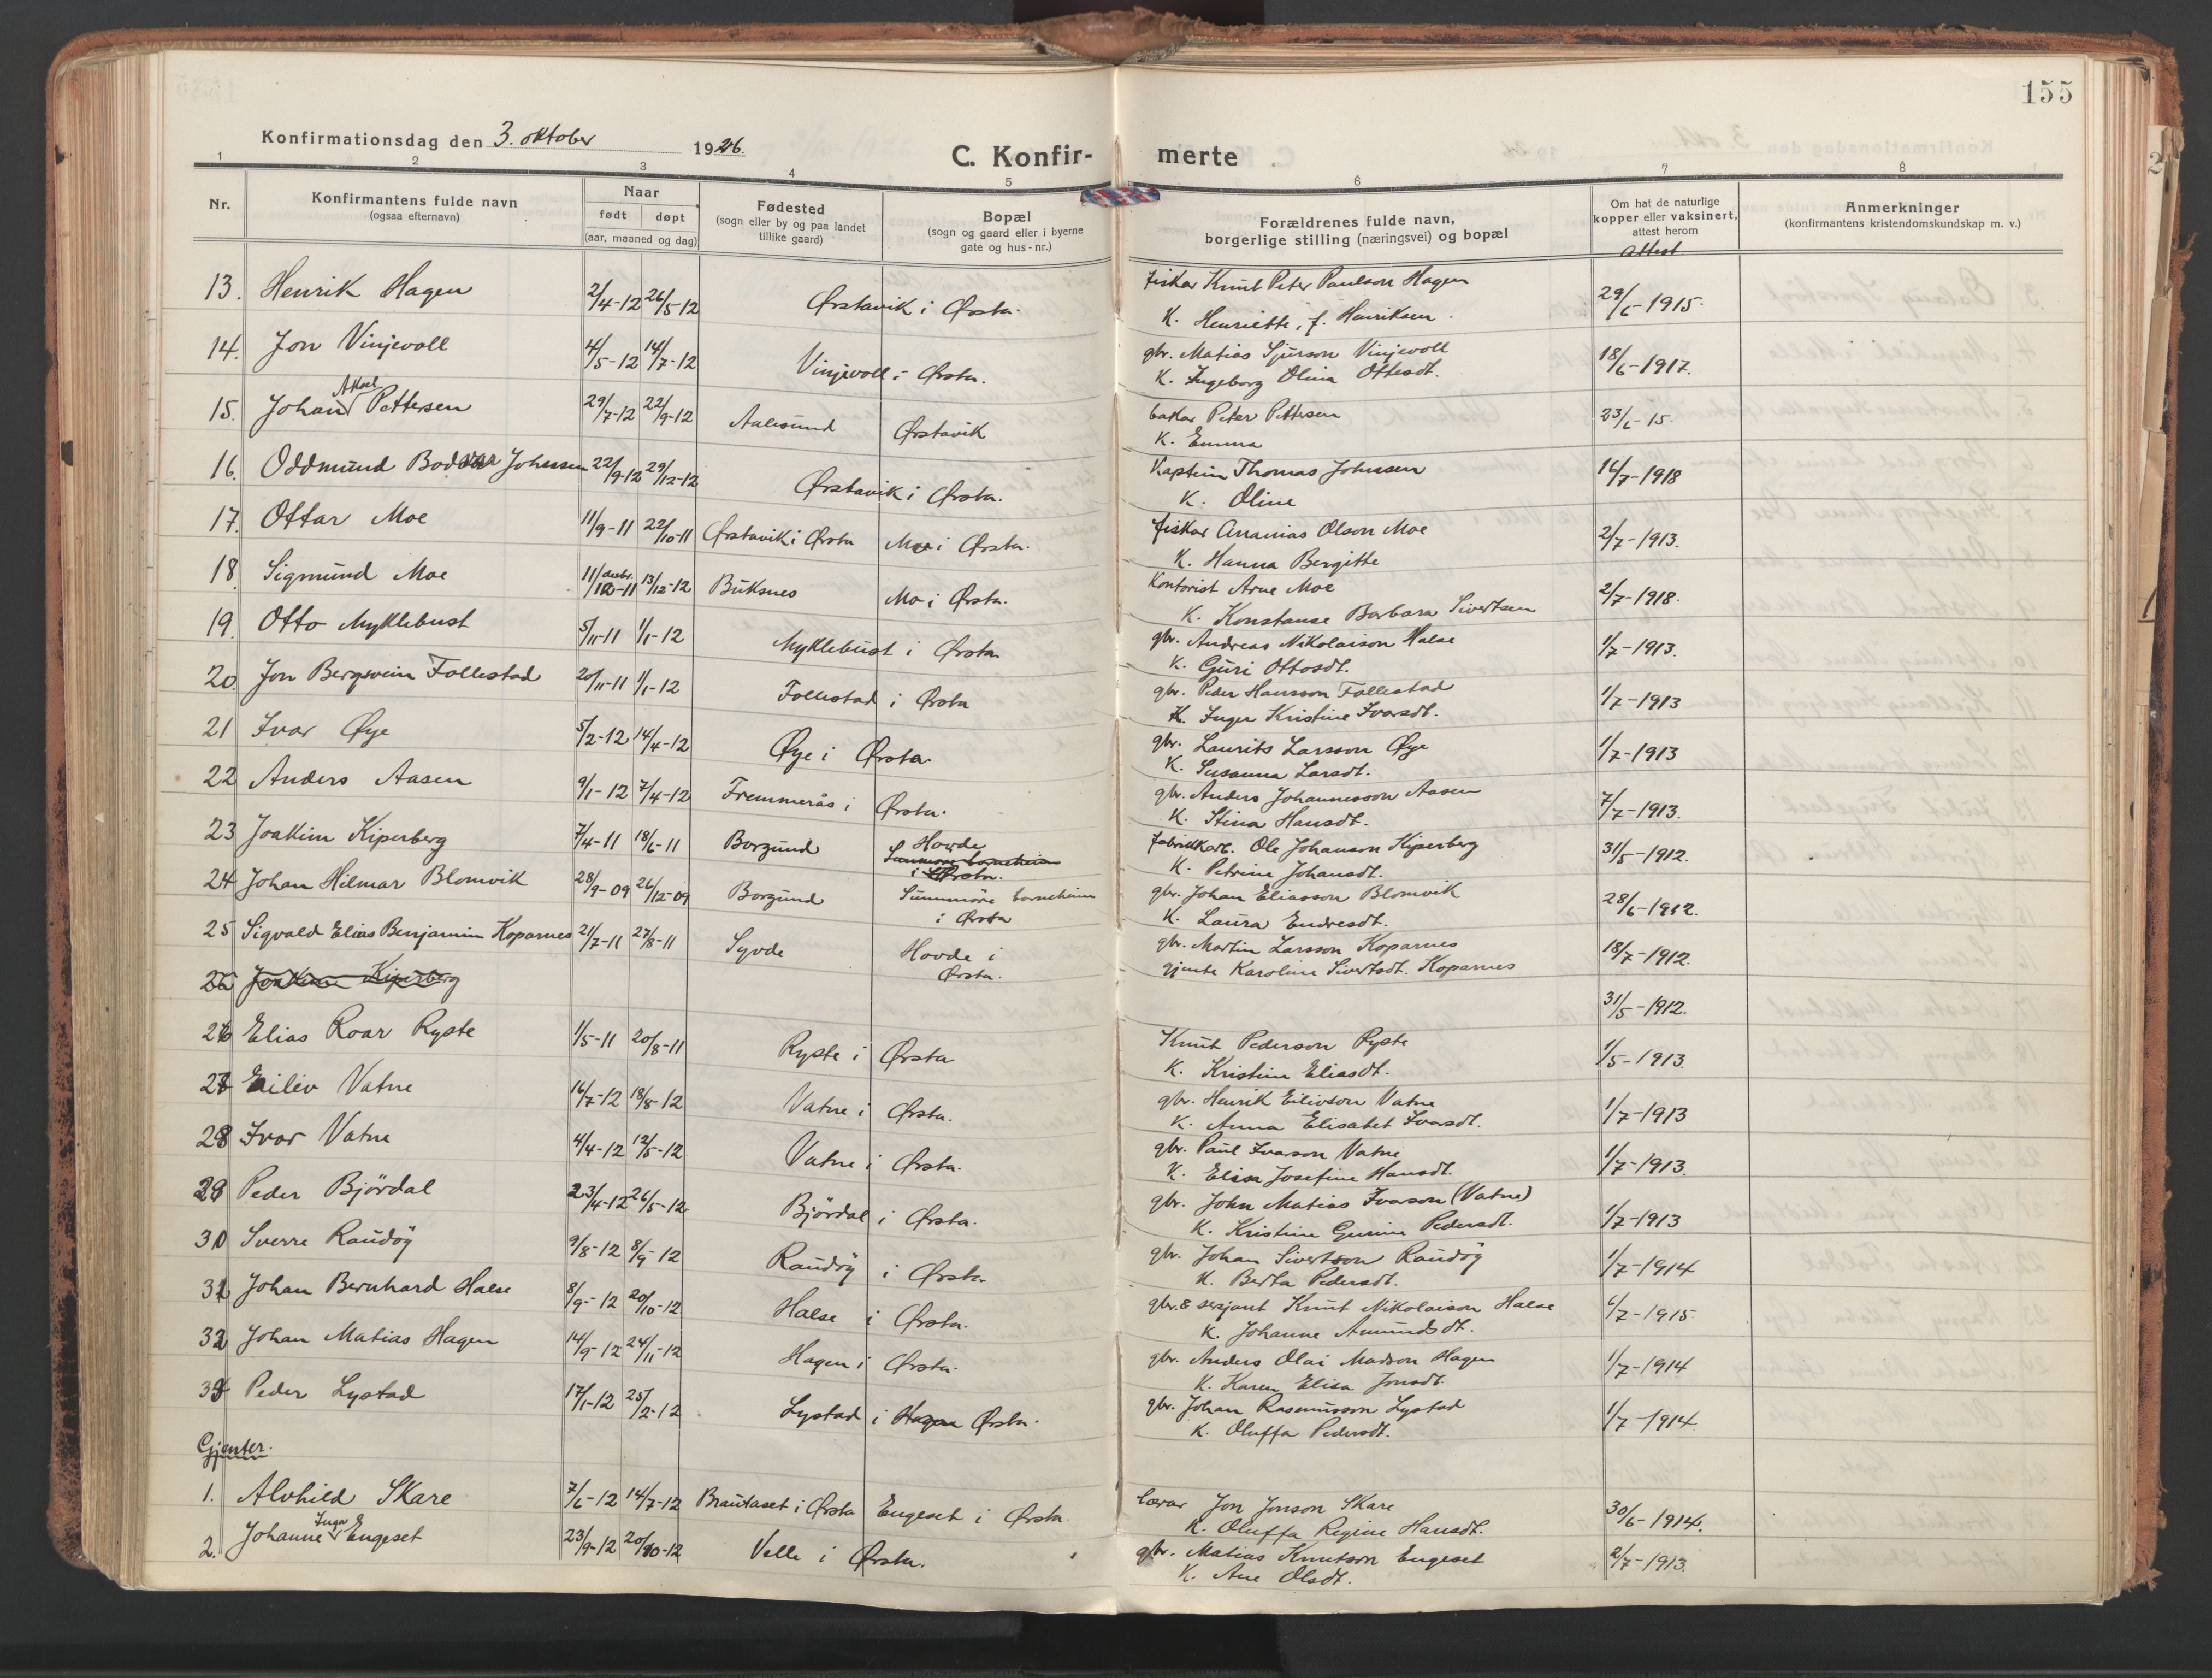 155
Konfirmationsdag den 3. oktober 1926.
C. Konfirmerte
1 2 3 4 5 6 7 8
Nr.
Konfirmantens fulde navn
(ogsaa efternavn)
Naar
født døpt
(aar, maaned og dag)
Fødested
(sogn eller by og paa landet
tillike gaard)
Bopæl
(sogn og gaard eller i byerne
gate og hus-nr.)
Forældrenes fulde navn,
borgerlige stilling (næringsvei) og bopæl
Om hat de naturlige
kopper eller vaksinert,
attest herom
attest
Anmerkninger
(konfirmantens kristendomskundskap m. v.)
13. Henrik Hagen 2/4-12 26/5-12 Ørstavik i Ørsta. fiskar Knut Peter Paulson Hagen 29/6-1915.
K. Henriette, f. Henriksen.
14. Jon Vinjevoll 4/5-12 14/7-12 Vinjevoll i Ørsta. gbr. Matias Sjurson Vinjevoll 18/6-1917.
K. Ingeborg Olina Ottesdt.
15. Johan Aksel Pettersen 29/7-12 22/9-12 Aalesund Ørstavik bakar Peter Pettersen 23/6-15.
K. Emma
16. Oddmund Bodvar Johnssen 22/9-12 29/12-12 Ørstavik i Ørsta. Kaptein Thomas Johnssen 16/7-1918
K. Oline
17. Ottar Moe 11/9-11 22/10-11 Ørstavik i Ørsta Mo i Ørsta. fiskar Ananias Olson Moe 2/7-1913.
K. Hanna Bergitte
18 Sigmund Moe 11/12-11 desbr. 13/12-12 Buksnes Mo i Ørsta. Kontorist Arne Moe 2/7-1918.
K. Konstanse Barbara Sivertsen
19. Otto Myklebust 5/11-11 1/1-12 Myklebust i Ørsta gbr. Andreas Nikolaison Halse 1/7-1913.
K. Guri Ottosdt.
20. Jon Bergsvein Follestad 20/11-11 1/1-12 Follestad i Ørsta gbr. Peder Hansson Follestad 1/7-1913
K. Inger Kristine Ivarsdt.
21 Ivar Øye 5/2-12 14/4-12 Øye i Ørsta. gbr. Laurits Larsson Øye 1/7-1913
K. Susanna Larsdt.
22 Anders Aasen 9/1-12 7/4-12 Fremmerås i Ørsta. gbr. Anders Johannesson Aasen 7/7-1913.
K. Stina Hansdt.
23 Joakim Kiperberg 7/4-11 18/6-11 Borgund Hovde fabrikkarb. Ole Johanson Kiperberg 31/5-1912.
Sunmøre barneheim
i Ørsta. K. Petrine Johansdt.
24 Johan Hilmar Blomvik 28/9-09 26/12-09 Borgund Sunnmøre barneheim gbr. Johan Eliasson Blomvik 28/6-1912.
i Ørsta K. Laura Endresdt.
25 Sigvald Elias Benjamin Koparnes 21/7-11 27/8-11 Syvde Hovde i gbr. Martin Larsson Koparnes 18/7-1912.
Ørsta. gjente Karoline Sivertsdt. Koparnes
26 Joakim Kiperberg 31/5-1912.
26 Elias Roar Ryste 1/5-11 20/8-11 Ryste i Ørsta Knut Pederson Ryste 1/5-1913.
K. Kristine Eliasdt.
27 Eiliv Vatne 16/7-12 18/8-12 Vatne i Ørsta. gbr. Henrik Eilivson Vatne 1/7-1913
K. Anna Elisabet Ivarsdt.
28 Ivar Vatne 4/4-12 12/5-12 Vatne i Ørsta. gbr. Paul Ivarson Vatne 1/7-1913.
K. Elisa Josefine Hansdt.
29 Peder Bjørdal 23/4-12 26/5-12. Bjørdal i Ørsta. gbr. John Matias Ivarson (Vatne) 1/7-1913
K. Kristine Gurine Pedersdt.
30 Sverre Raudøy 9/8-12 8/9-12 Raudøy i Ørsta. gbr. Johan Sivertson Raudøy 1/7-1914
K. Berta Pedersdt.
31 Johan Bernhard Halse 8/9-12 20/10-12 Halse i Ørsta. gbr. & serjant Knut Nikolaison Halse 6/7-1915.
K. Johanne Amundsdt.
32 Johan Matias Hagen 14/9-12 24/11-12 Hagen i Ørsta. gbr. Anders Olai Madson Hagen 1/7-1914
K. Karen Elisa Jonsdt.
33 Peder Lystad 17/1-12 25/2-12 Lystad i Hagen Ørsta. gbr. Johan Rasmusson Lystad 1/7-1914
K. Oluffa Pedersdt.
Gjenter.
1. Alvhild Skare 7/6-12 14/7-12 Brautaset i Ørsta Engeset i Ørsta. lærar Jon Jonson Skare 30/6-1914.
K. Oluffa Regine Hansdt.
2. Johanne Inga Engeset 23/9-12 20/10-12 Velle i Ørsta. gbr. Matias Knutson Engeset 2/7-1913.
K. Ane Olsdt.